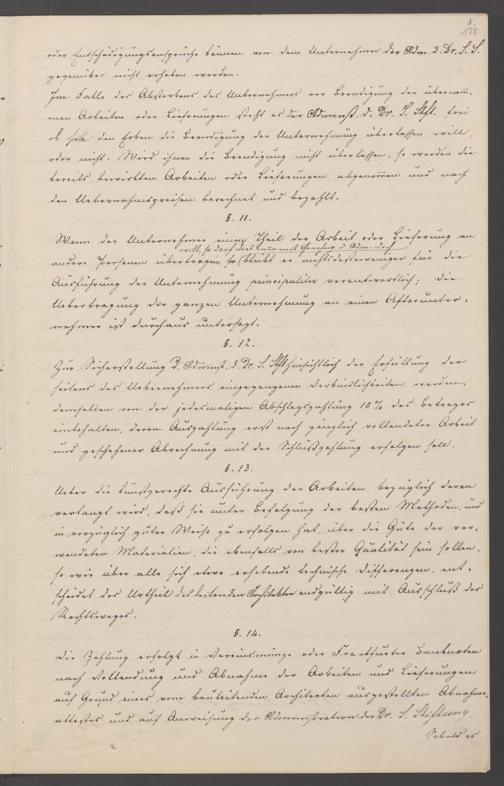 5.
178
oder Entschädigungsansprüche können von dem Unternehmer der Adm. d. Dr. S. S.
gegenüber nicht erhoben werden.
Im Falle des Absterbens des Unternehmers vor Beendigung der übernom̄,
menen Arbeiten oder Lieferungen steht es der Administ. d. Dr. S. Stft. frei
ob sie den Erben die Beendigung der Unternehmung überlassen will
oder nicht. Wird ihnen die Beendigung nicht überlassen, so werden die
bereits bewirkten Arbeiten oder Lieferungen abgenom̄en und nach
den Uebernahmspreisen berechnet und bezahlt.
§. 11.
Wenn der Unternehmer einen Theil der Arbeit oder Lieferung an
will, so darf dies nur mit Genehmig. d. Adm.
andere Personen übertragen so bleibt er nichtsdestoweniger für die
Ausführung der Unternehmung principaliter verantwortlich; die
Uebertragung der ganzen Unternehmung an einen Afterunter-
nehmer ist durchaus untersagt.
§. 12.
Zur Sicherstellung d. Administ. d. Dr. S. Stft hinsichtlich der Erfüllung der
seitens des Uebernehmers eingegangenen Verbindlichkeiten werden
demselben von der jedesmaligen Abschlagszahlung 10% des Betrages
einbehalten, deren Auszahlung erst nach gänzlich vollendeter Arbeit
und geschehener Abrechnung mit der Schlußzahlung erfolgen soll.
§. 13.
Ueber die kunstgerechte Ausführung der Arbeiten, bezüglich deren
verlangt wird, daß sie unter Befolgung der besten Methoden und
in vorzüglich guter Weise zu erfolgen hat, über die Güte der ver-
wendeten Materialien, die ebenfalls von bester Qualität sein sollen,
so wie über alle sich etwa erhebende technische Differenzen, ent-
scheidet das Urtheil des leitenden Architekten endgültig mit Ausschluß des
Rechtsweges.
§. 14.
Die Zahlung erfolgt in Vereinsmünze oder Frankfurter Banknoten
nach Vollendung und Abnahme der Arbeiten und Lieferungen
auf Grund eines vom bauleitenden Architecten ausgestellten Abnahme,
attestes und auf Anweisung der Administration der Dr. S. Stiftung.
Sobald es